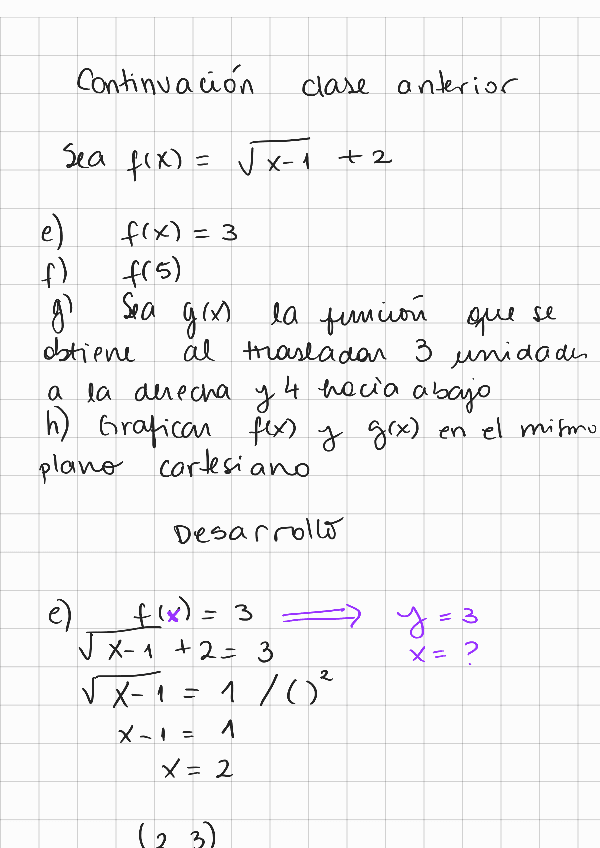 Continuación clase anterior
Sea f(x) = √x-1 + 2
e) f(x) = 3
f) f(5)
g) Sea g(x) la función que se
obtiene al trasladar 3 unidades
a la derecha y 4 hacia abajo
h) Graficar f(x) y g(x) en el mismo
plano cartesiano
Desarrollo
e) f(x) = 3 ⟹ y = 3
√x-1 + 2 = 3 x = ?
√x-1 = 1 /( )²
x-1 = 1
x = 2
(2 3)